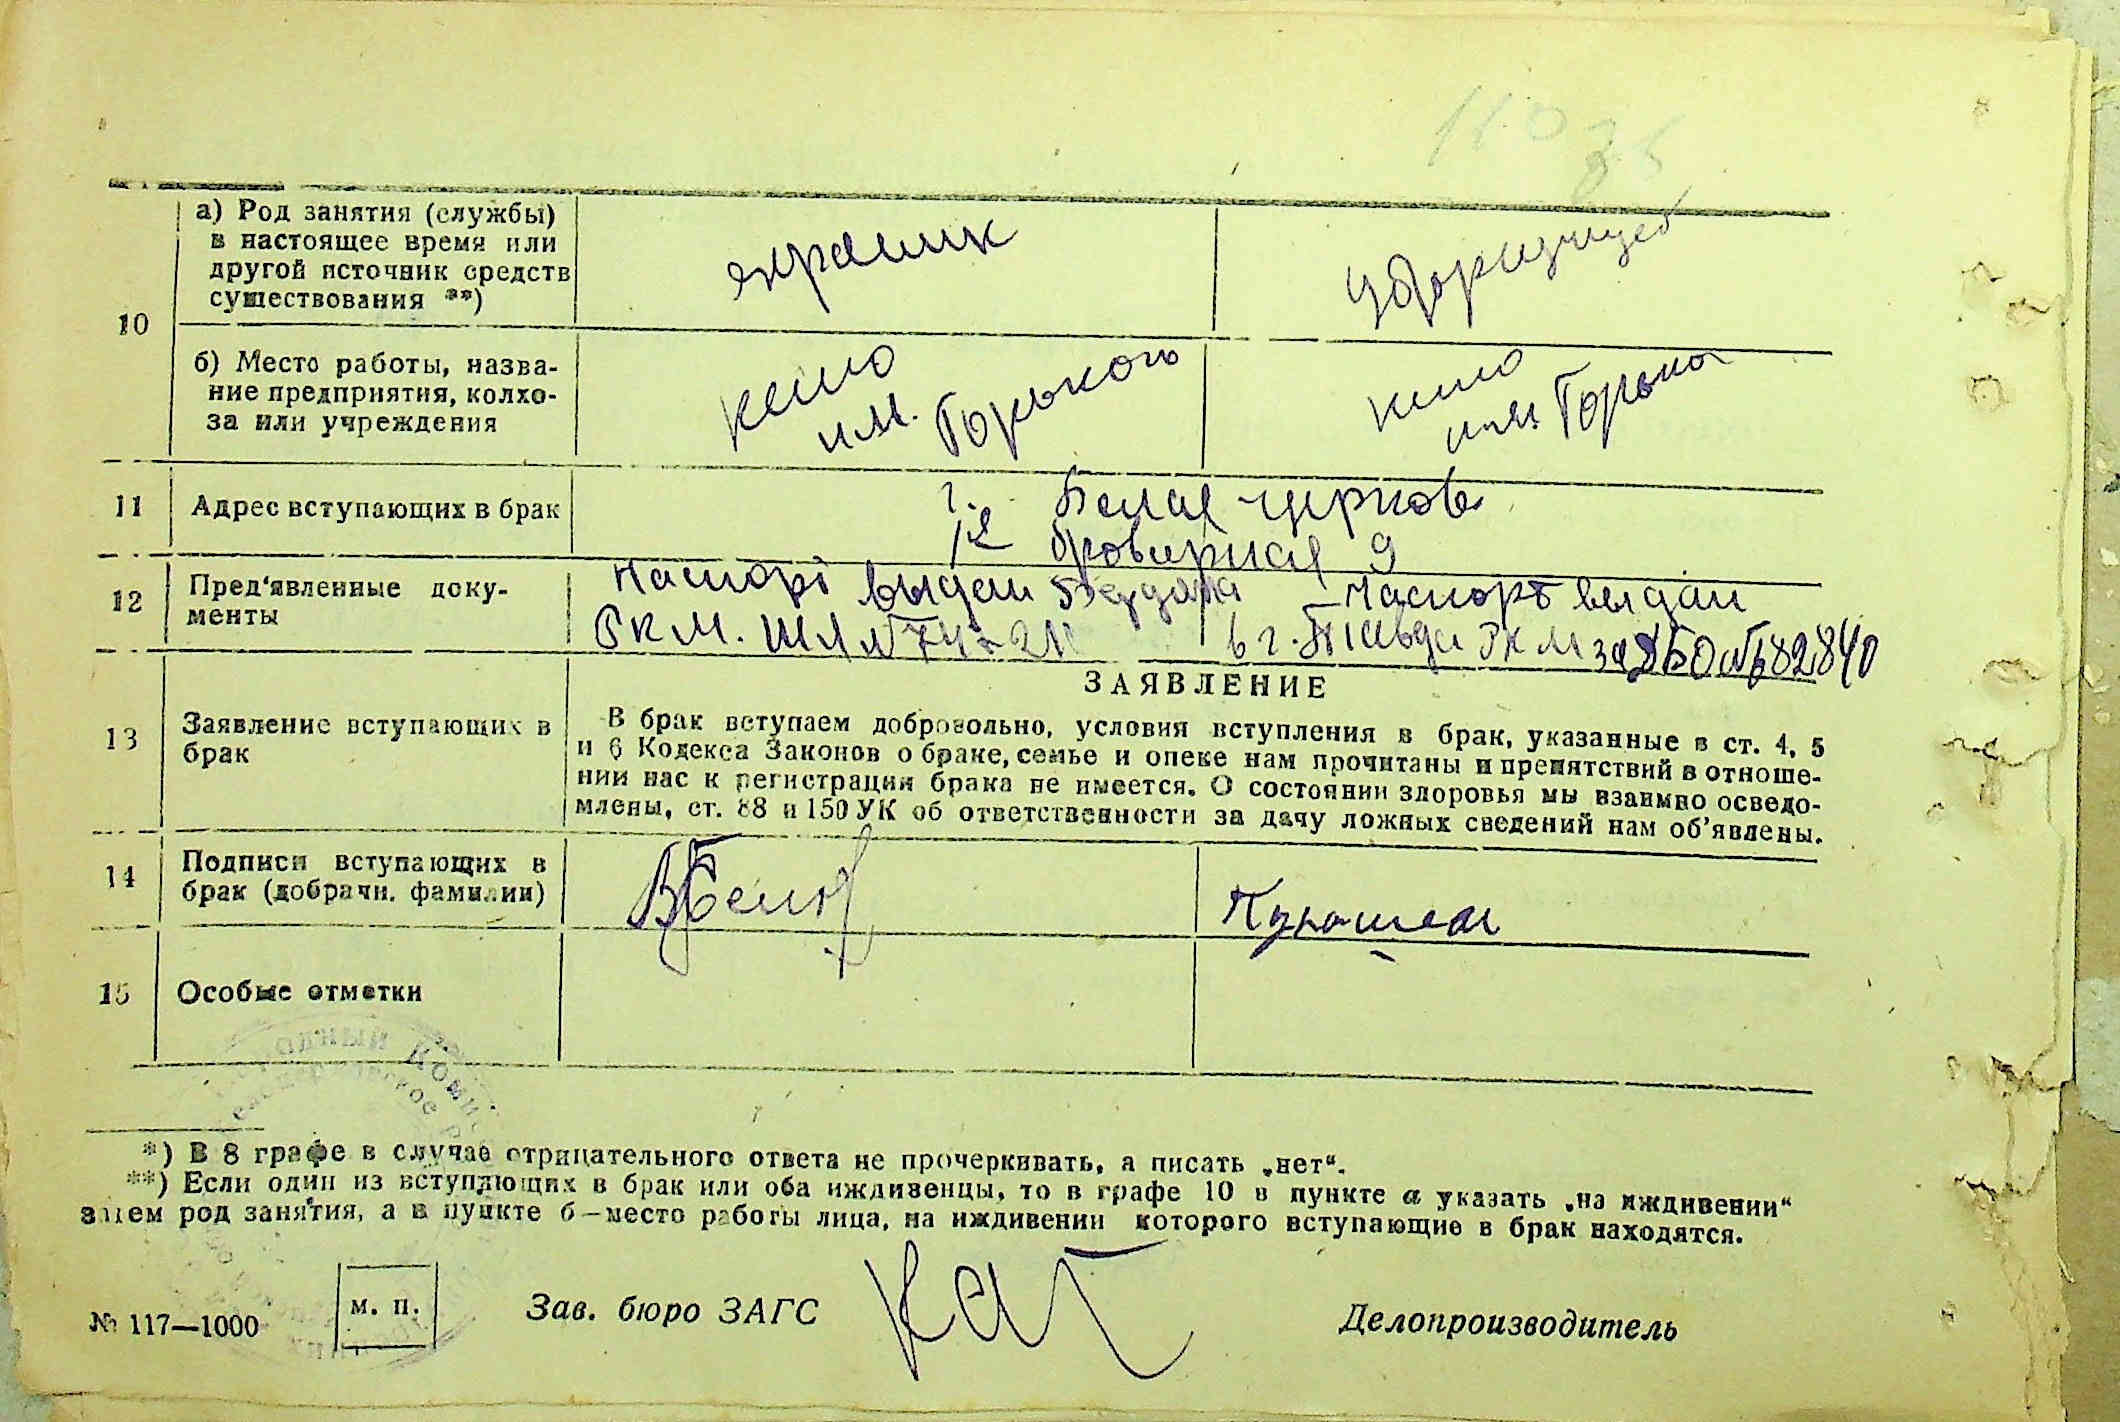 10
а) Род занятия (службы)
в настоящее время или
другой источник средств
существования **)
б) Место работы, назва-
ние предприятия, колхо-
за или учреждения
кино
им. Горького
кино
им. Горько
11
Адрес вступающих в брак
г. Белая-церковь
9
12
Пред'явленные доку-
менты
Паспорт выдан
РКМ.
Паспорт выдан
в г. РКМ за № 682840
ЗАЯВЛЕНИЕ
13
Заявление вступающих в
брак
В брак вступаем добровольно, условия вступления в брак, указанные в ст. 4, 5
и 6 Кодекса Законов о браке, семье и опеке нам прочитаны и препятствий в отноше-
нии нас к регистрации брака не имеется. О состоянии здоровья мы взаимно осведо-
млены, ст. 88 и 150 УК об ответственности за дачу ложных сведений нам об'явлены.
14
Подписи вступающих в
брак (добрачн. фамилии)
15
Особые отметки
*) В 8 графе в случае отрицательного ответа не прочеркивать, а писать „нет“.
**) Если один из вступающих в брак или оба иждивенцы, то в графе 10 в пункте а указать „на иждивении“
затем род занятия, а в пункте б—место работы лица, на иждивении которого вступающие в брак находятся.
№ 117—1000
м. п.
Зав. бюро ЗАГС
Делопроизводитель